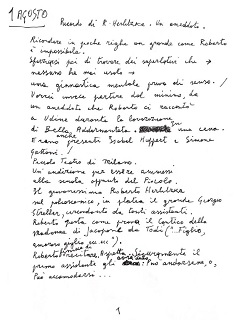 1 AGOSTO
Ricordo di R. Herlitzka. Un aneddoto.
Ricordare in poche righe un grande come Roberto
è impossibile.
Sforzarsi poi di trovare dei superlativi che
nessuno ha mai usato
una ginnastica mentale priva di senso. /
Vorrei invece partire dal minimo, da
un aneddoto che Roberto ci raccontò
a Udine durante la lavorazione
di Bella Addormentata. In una cena.
Erano anche presenti Isabel Huppert e Simone
Gattoni. /
Piccolo Teatro di Milano.
Un'audizione per essere ammesso
alla scuola, appunto del Piccolo.
Il giovanissimo Roberto Herlitzka
sul palcoscenico, in platea il grande Giorgio
Strehler, circondato da tanti assistenti.
Roberto porta come prova il Cantico della
Madonna di Jacopone da Todi ("Figlio,
amoroso giglio ecc. ecc.").
Roberto finisce. Aspetta. Finalmente il
primo assistente gli dice: Può andarsene, o,
Può accomodarsi.
1